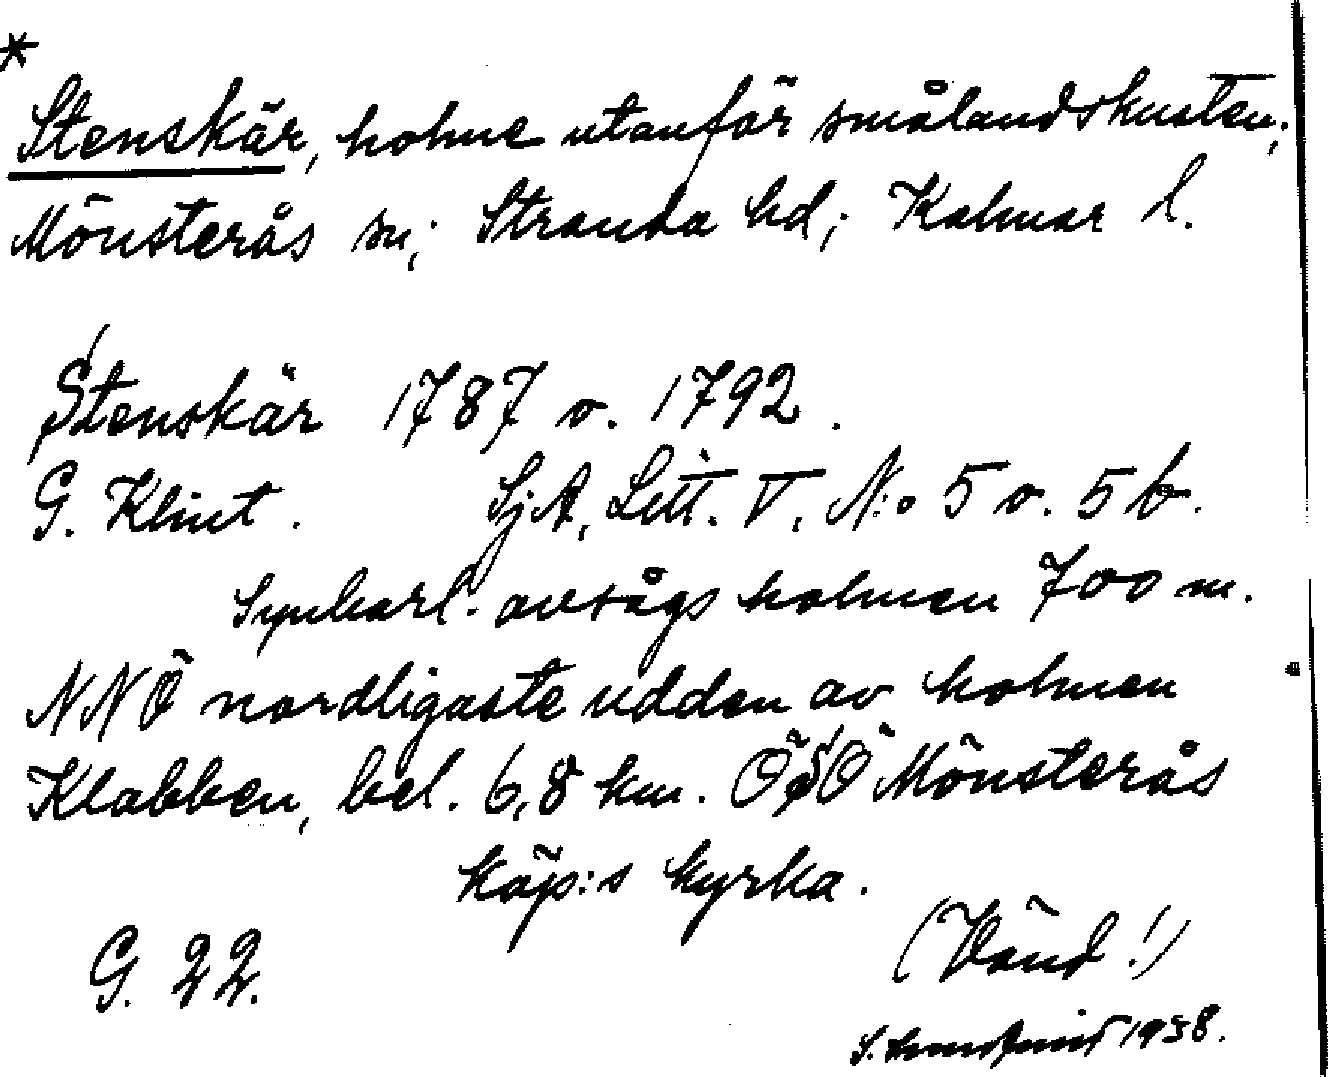 *
Stenskär, holme utanför smålandskusten;
Mönsterås sn; Stranda hd; Kalmar l.
Stenskär 1787 o. 1792.
G. Klint. SjA, Litt. V, N:o 5 o. 5 b.
Synbarl. avsågs holmen 700 m.
NNÖ nordligaste udden av holmen
Klabben, bel. 6,8 km. ÖSÖ Mönsterås
köp:s kyrka.
G. 22. (Vänd!)
S. 1938.